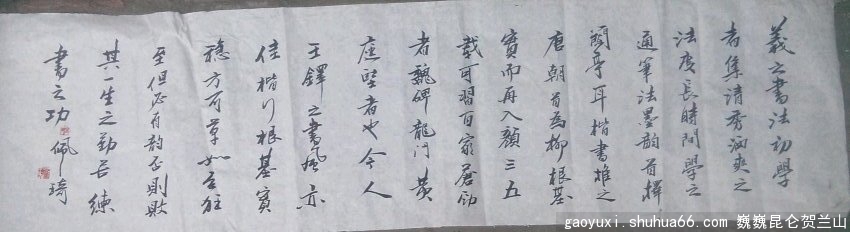 羲之書法初學
者集清秀涵爽之
法度長時間學之
通筆法墨韵首擇
蘭亭耳楷書推之
唐朝首為柳根基
實而再入顏三五
載可習百家蒼勁
者魏碑龍门黄
庭堅者也今人
王鐸之書風亦
佳楷行根基實
穩方可草如至狂
至但必有韵否則敗
其一生之勤苦練
書之功
佩琦
gaoyuxi.shuhua66.com 巍巍昆仑贺兰山